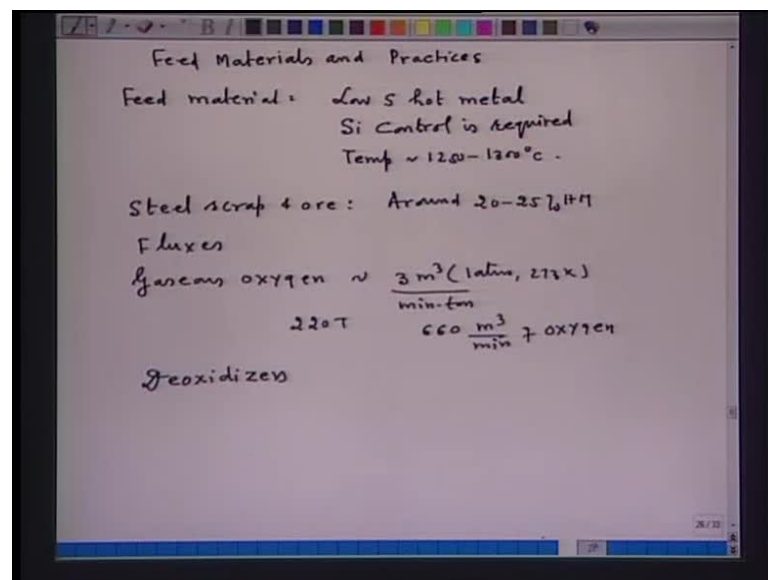 Feed Materials and Practices
Feed material: Low S hot metal
Si Control is required
Temp ~ 1250-1300°C.
Steel scrap & ore: Around 20-25% HM
Fluxes
Gaseous oxygen ~ 3 m³ (1atm, 273K)
min.ton
220T 660 m³/min of oxygen
Deoxidizers
26/33